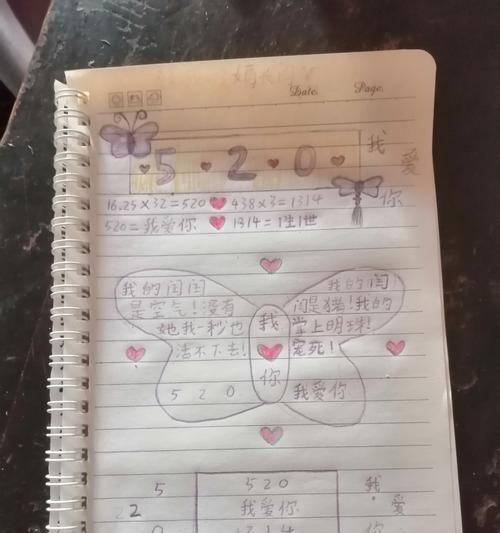 Date: Page:
5 · 2 · 0
我
爱
你
16.25×32=520 438×3=1314
520=我爱你 1314=1生1世
我的闰闰
是空气!没有
她我一秒也
活不下去!
5 2 0
我
你
我的闰
闰是猪!我的
掌上明珠!
宠死!
我爱你
5
2 2
520
我爱你
我
爱
你